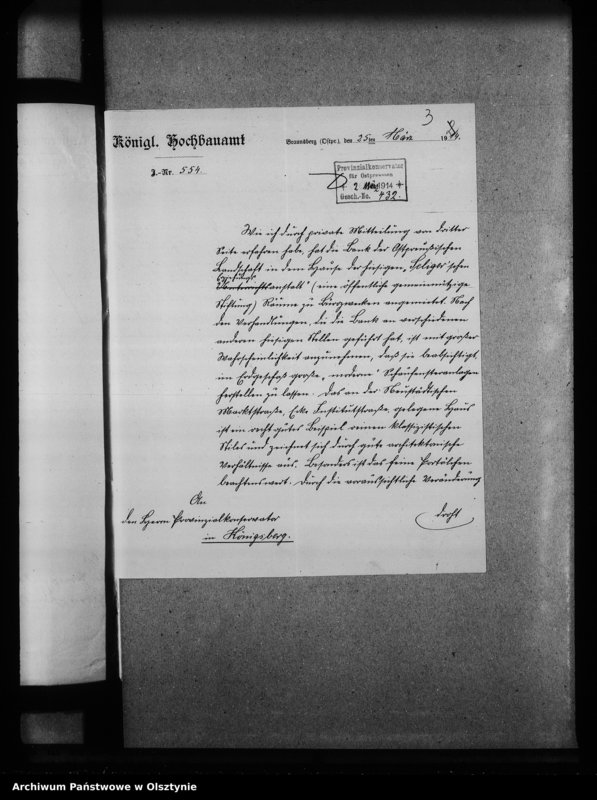 3
Königl. Hochbauamt
Braunsberg (Ostpr.), den 25ten März 1914.
J.-Nr. 554
Provinzialkonservator
für Ostpreussen
2 1914
Gesch.-No. 432.
Wie ich durch private Mitteilung von dritter
Seite erfahren habe, hat die Bank der Ostpreußischen
Landschaft in dem Hause der hiesigen „Seliger'schen
Erziehungs
Unterrichtsanstalt" (eine öffentliche gemeinnützige
Stiftung) Räume zu Bürozwecken angemietet. Nach
den Verhandlungen, die die Bank an verschiedenen
anderen hiesigen Stellen geführt hat, ist mit großer
Wahrscheinlichkeit anzunehmen, daß sie beabsichtigt
im Erdgeschoß große, „moderne" Schaufensteranlagen
herstellen zu lassen. Das an der Neustädtischen
Marktstraße, Ecke Institutstraße, gelegene Haus
ist ein recht gutes Beispiel reinen klassizistischen
Stiles und zeichnet sich durch gute architektonische
Verhältnisse aus. Besonders ist das feine Portälchen
beachtenswert. Durch die voraussichtliche Veränderung
droht
An
den Herrn Provinzialkonservator
in Königsberg.
Archiwum Państwowe w Olsztynie